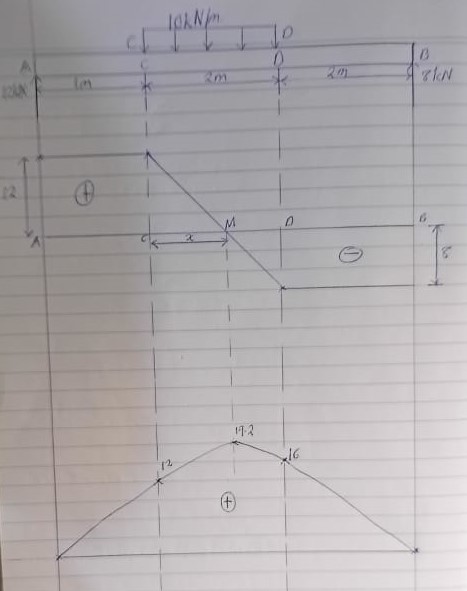 10kN/m
C D
A C D B
1m 2m 2m 8kN
12 +
A C x M D B
- 8
19.2
12 16
+